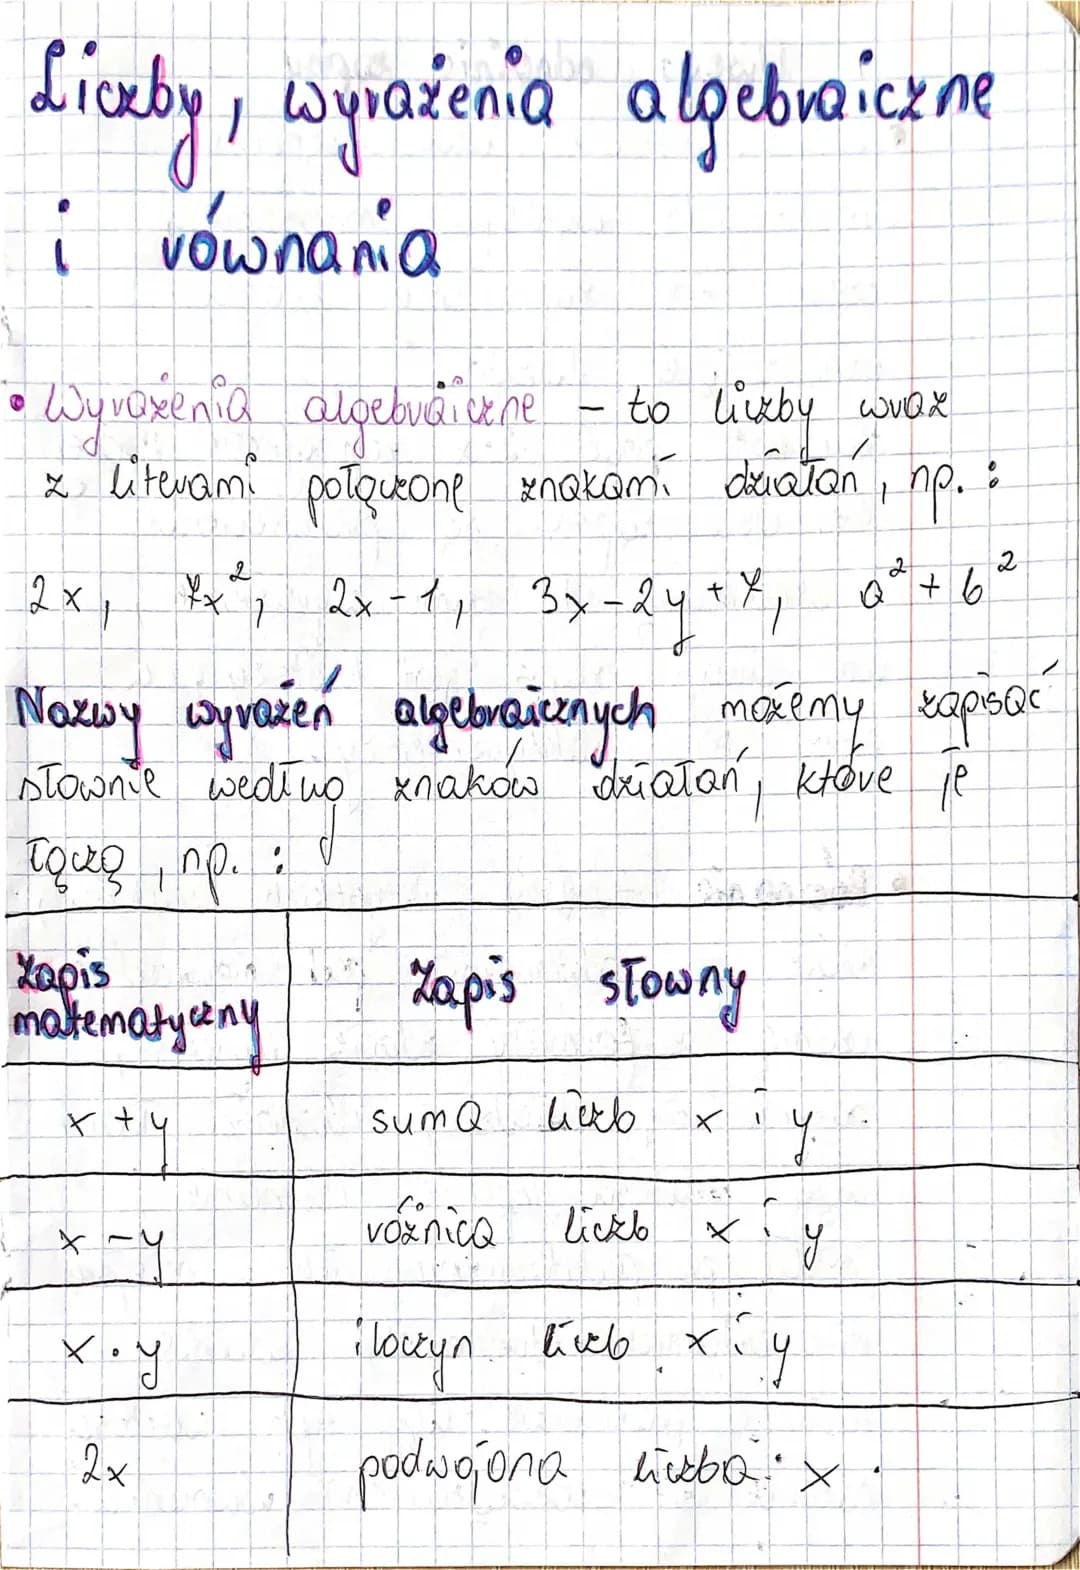 Liczby, wyrażenia algebraiczne
i równania
• Wyrażenia algebraiczne - to liczby wraz
z literami połączone znakami działań, np.:
2x, 7x², 2x-1, 3x-2y+7, a²+b²
Nazwy wyrażeń algebraicznych możemy zapisać
słownie według znaków działań, które je
łączą, np.:
Zapis matematyczny | Zapis słowny
x+y | suma liczb x i y
x-y | różnica liczb x i y
x·y | iloczyn liczb x i y
2x | podwojona liczba x